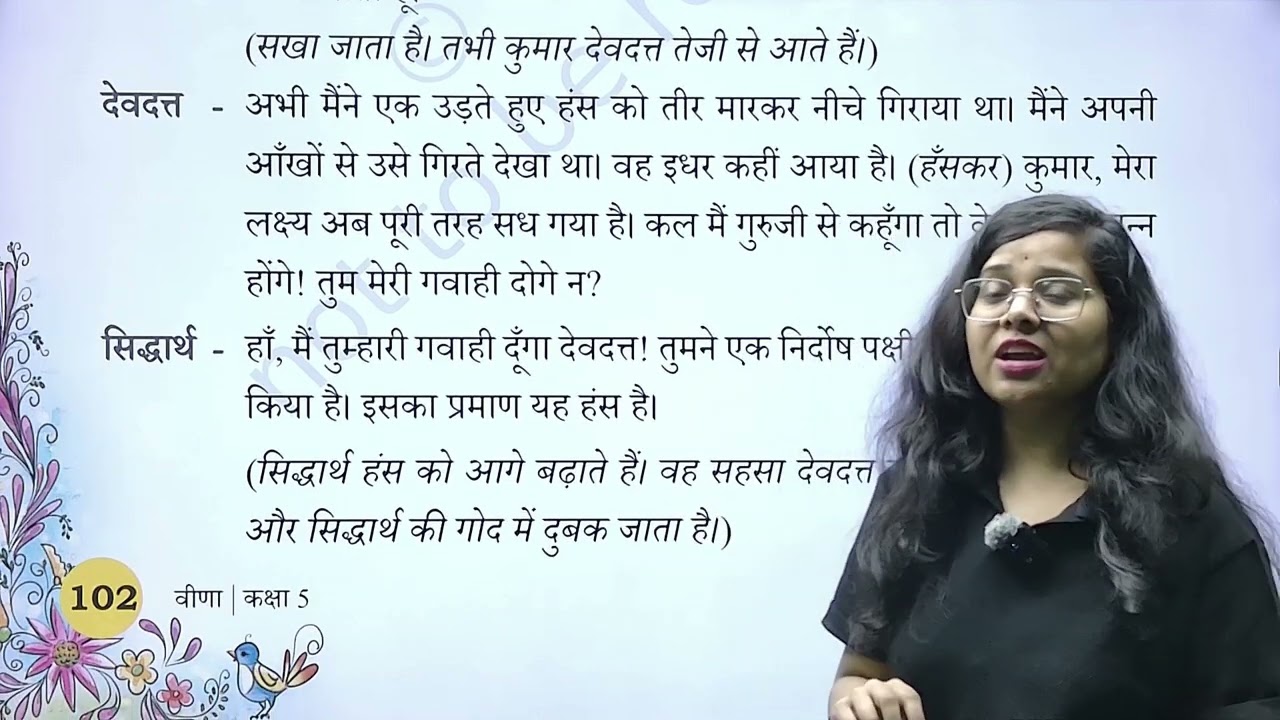 (सखा जाता है। तभी कुमार देवदत्त तेजी से आते हैं।)
देवदत्त - अभी मैंने एक उड़ते हुए हंस को तीर मारकर नीचे गिराया था। मैंने अपनी
आँखों से उसे गिरते देखा था। वह इधर कहीं आया है। (हँसकर) कुमार, मेरा
लक्ष्य अब पूरी तरह सध गया है। कल मैं गुरुजी से कहूँगा तो
होंगे! तुम मेरी गवाही दोगे न?
सिद्धार्थ - हाँ, मैं तुम्हारी गवाही दूँगा देवदत्त! तुमने एक निर्दोष पक्षी
किया है। इसका प्रमाण यह हंस है।
(सिद्धार्थ हंस को आगे बढ़ाते हैं। वह सहसा देवदत्त
और सिद्धार्थ की गोद में दुबक जाता है।)
102 वीणा | कक्षा 5
© not to be